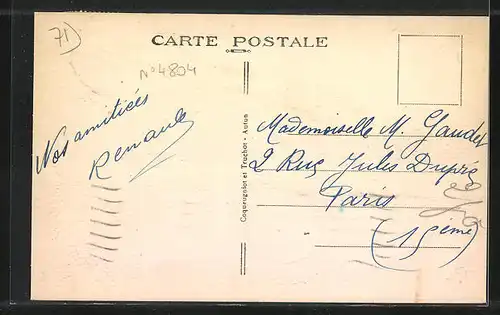 71
CARTE POSTALE
N° 4804
Nos amitiés
Renaude
Coqueugniot et Truchot - Autun
Mademoiselle M. Gaudet
2 Rue Jules Dupré
Paris
(15ème)